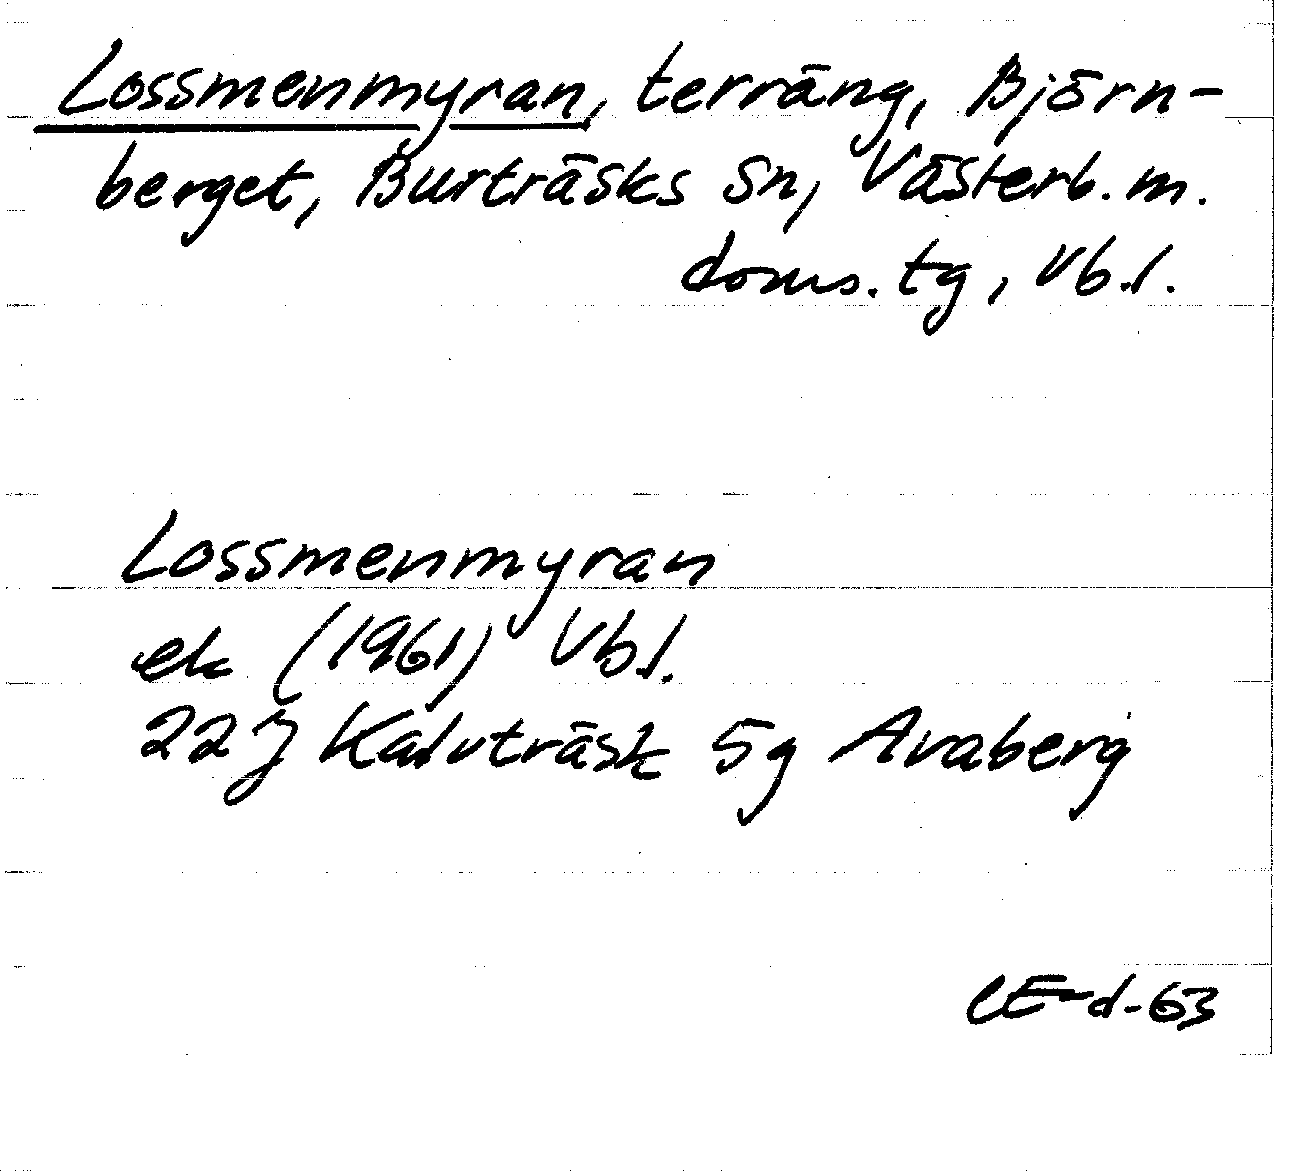 Lossmenmyran, terräng, Björn-
berget, Burträsks sn, Västerb. m.
doms. tg, Vb.l.
Lossmenmyran
ek (1961) Vb.l.
22J Kalvträsk 5g Avaberg
CE-d-63